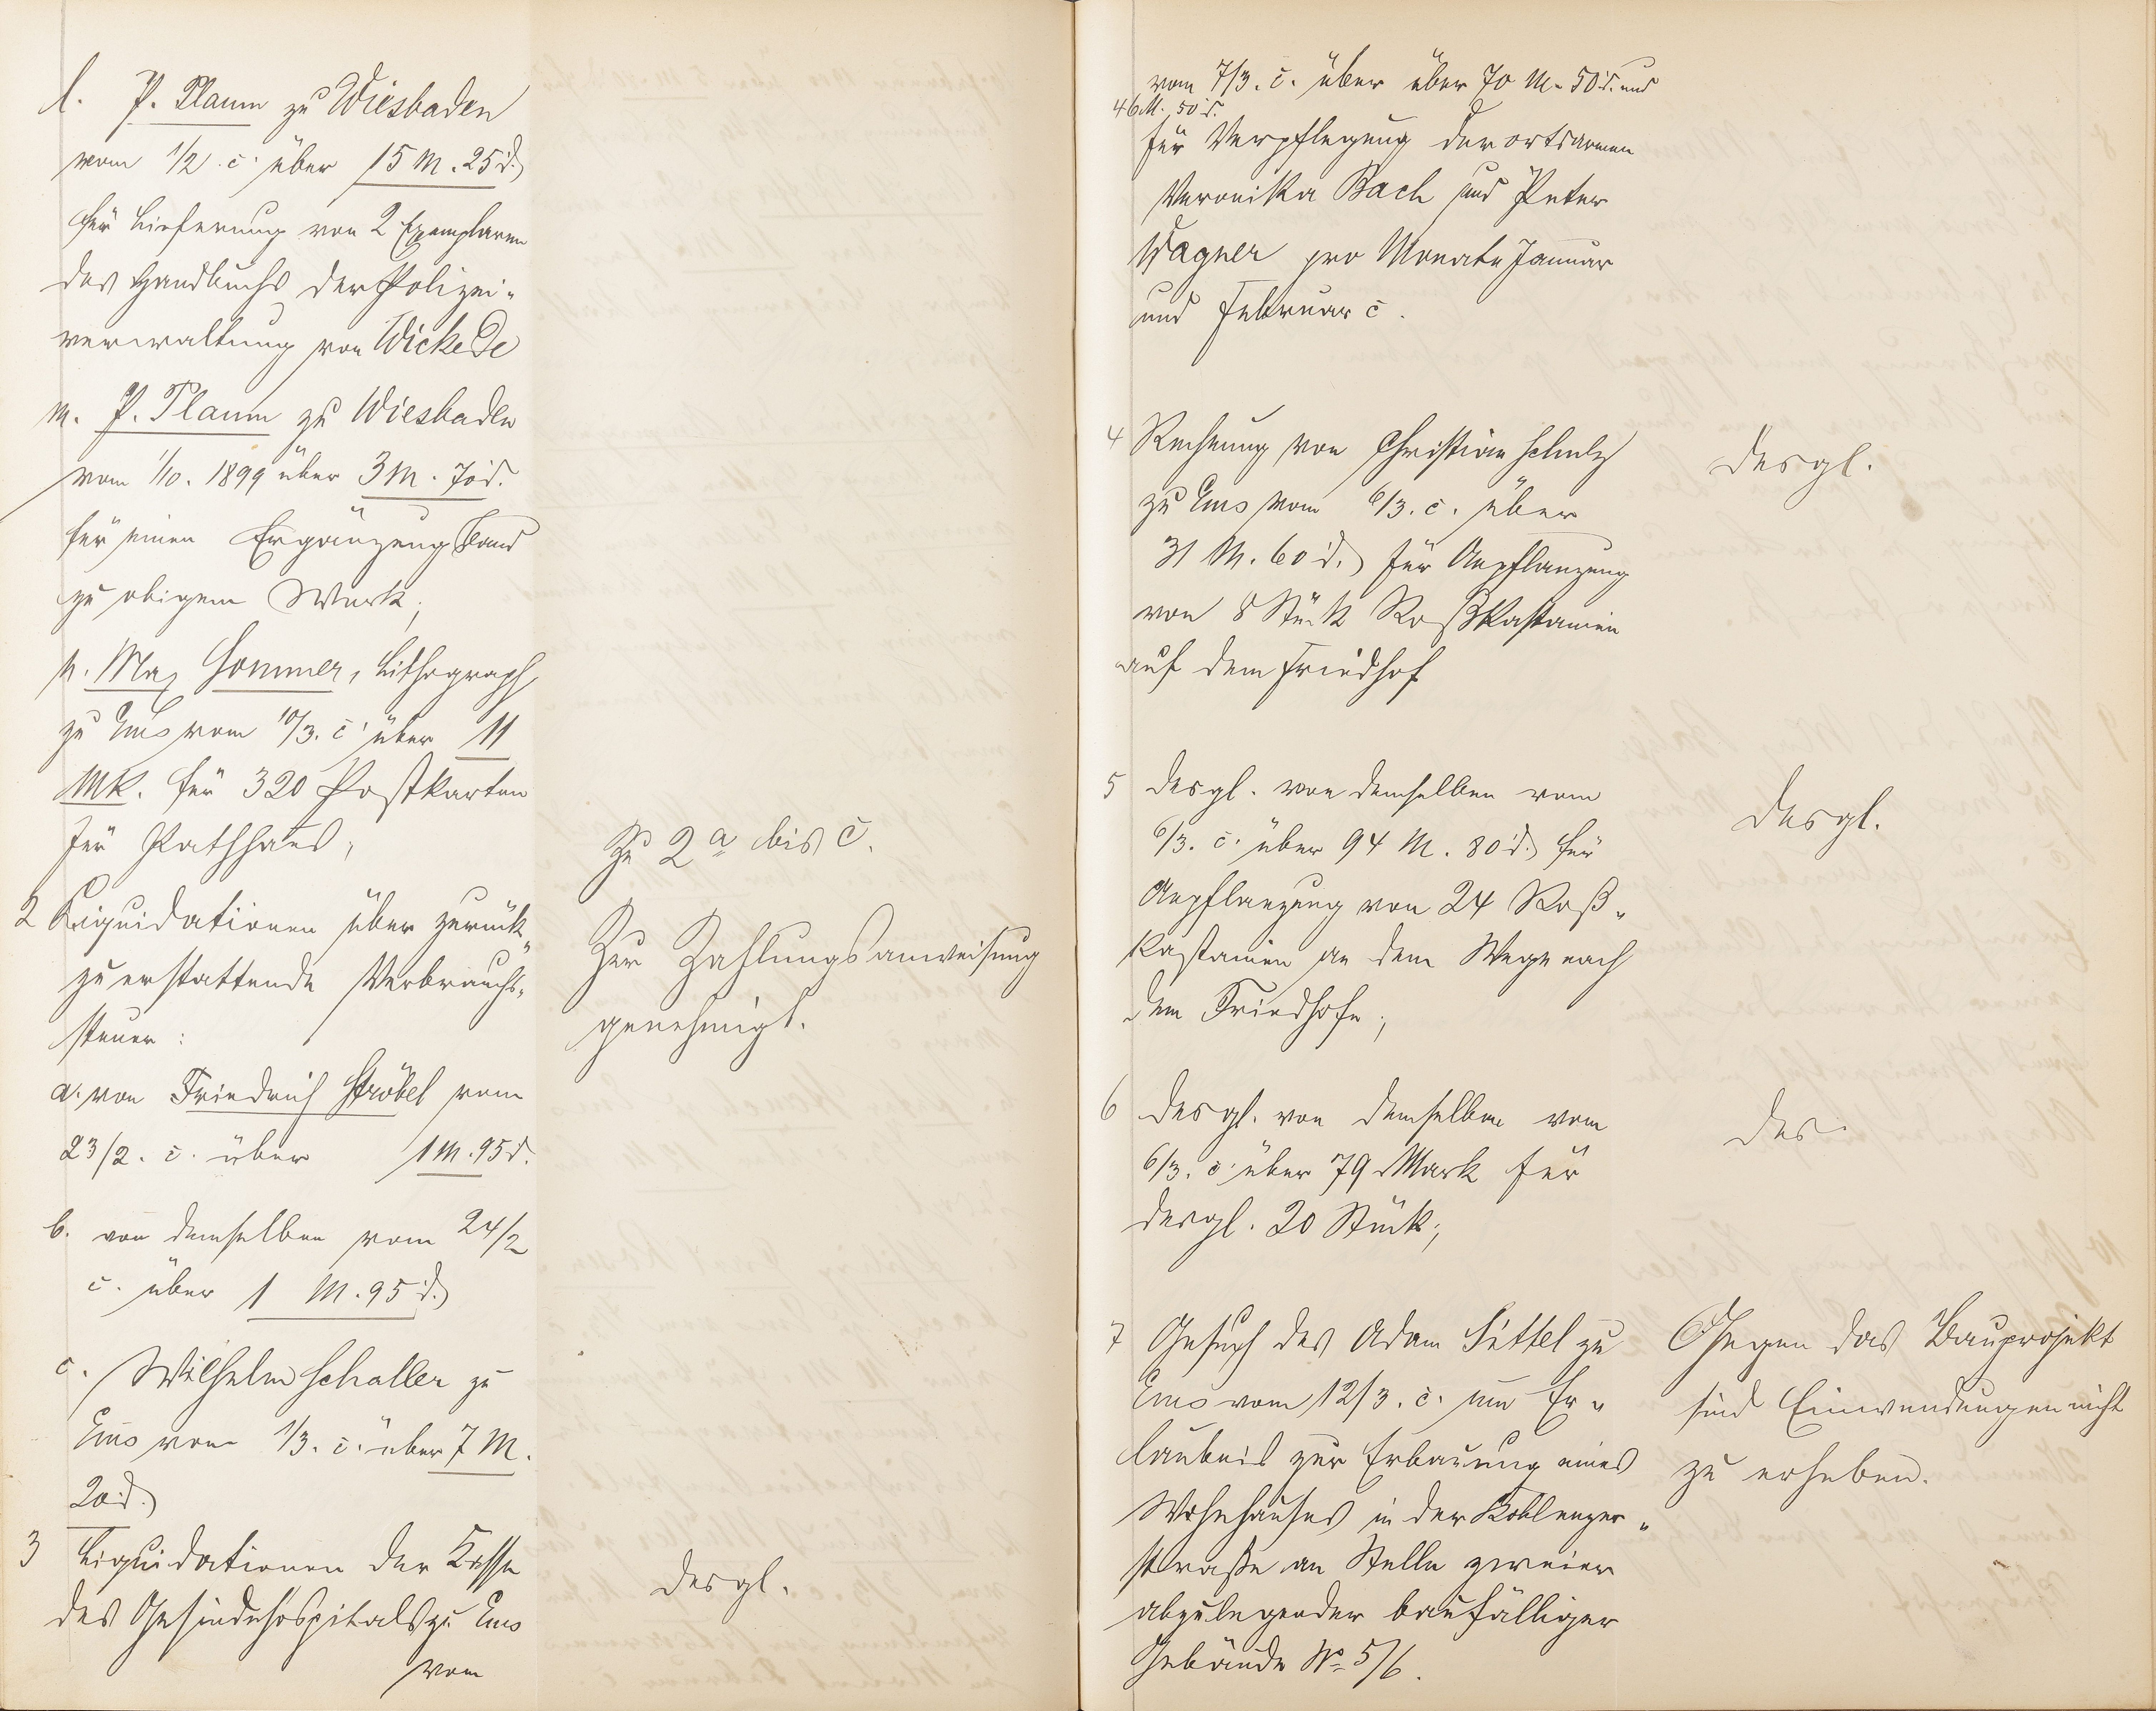 l. P. Plaum zu Wiesbaden
vom 1/2 c. über 15 M. 25 d.
für Lieferung von 2 Exemplaren
des Handbuchs der Polizei-
verwaltung von Wickede
m. P. Plaum zu Wiesbaden
vom 1/10. 1899 über 3 M. 70 d.
für einen Ergänzungsband
zu obigem Werk;
n. Max Sommer, Lithograph
zu Ems vom 10/3. c. über 11
Mk. für 320 Postkarten
für Rathhaus;
2 Liquidationen über zurück-
zuerstattende Verbrauchs-
steuer:
a. von Friedrich Ströbel vom
23/2. c. über 1 M. 95 d.
b. von demselben vom 24/2
c. über 1 M. 95 d.
c. Wilhelm Schaller zu
Ems vom 1/3. c. über 7 M.
20 d.
3 Liquidationen der Kasse
des Gesindehospitals zu Ems
vom
Zu 2 a bis c.
Zur Zahlungsanweisung
genehmigt.
desgl.
vom 7/3. c. über über 70 M. 50 d. und
46 M. 50 d.
für Verpflegung der ortsarmen
Veronika Bach und Peter
Wagner pro Monate Januar
und Februar c.
4 Rechnung von Christian Schulz
zu Ems vom 6/3. c. über
31 M. 60 d. für Anpflanzung
von 8 Stück Roßkastanien
auf dem Friedhof
desgl.
5 desgl. von demselben vom
6/3. c. über 94 M. 80 d. für
Anpflanzung von 24 Roß-
kastanien an dem Wege nach
dem Friedhofe;
desgl.
6 desgl. von demselben vom
6/3. c. über 79 Mark für
desgl. 20 Stück;
des.
7 Gesuch des Adam Sittel zu
Ems vom 12/3. c. um Er-
laubnis zur Erbauung eines
Wohnhauses in der Koblenzer-
straße an Stelle zweier
abzulegender baufälliger
Gebäude No 5/6.
Gegen das Bauprojekt
sind Einwendungen nicht
zu erheben.